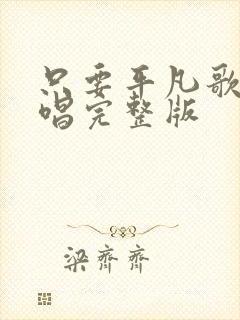 只要平凡歌
唱完整版
梁齐齐